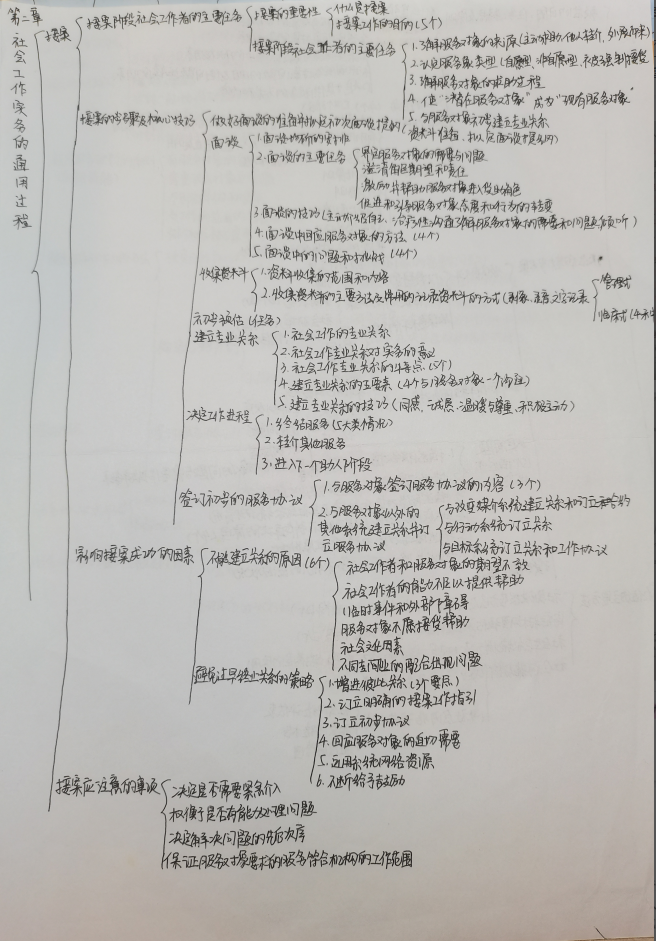 第二章
社会工作实务的通用过程
接案
接案阶段社会工作者的主要任务
接案的重要性
什么是接案
接案工作的目的(5个)
接案阶段社会工作者的主要任务
1.了解服务对象的来源(主动求助,他人转介,外展而来)
2.认定服务对象类型(自愿型、非自愿型
3.了解服务对象的求助过程
4.使“潜在服务对象”成为“现有服务对象”
5.与服务对象初步建立专业关系
接案的步骤及核心技巧
做好面谈的准备并拟定初次面谈提纲
(资料准备、拟定面谈提纲)
面谈
1.面谈场所的安排
2.面谈的主要任务
界定服务对象的需要与问题
澄清角色期望和责任
激励并帮助服务对象进入受助角色
促进和引导服务对象态度和行为的转变
3.面谈的技巧(主动介绍自己、治疗性沟通、了解服务对象的需要和问题、倾听)
4.面谈中回应服务对象的方法(4个)
5.面谈中的问题和挑战(4个)
收集资料
1.资料收集的范围和内容
2.收集资料的主要方法及常用的记录资料的方式
管理式
临床式
初步预估(任务)
建立专业关系
1.社会工作的专业关系
2.社会工作专业关系对实务的意义
3.社会工作专业关系的特点(5个)
4.建立专业关系的主要素(4个与服务对象一个沟通)
5.建立专业关系的技巧(同感、诚恳、温暖与尊重、积极主动)
决定工作进程
1.终结服务(5大类情况)
2.转介其他服务
3.进入下一个助人阶段
签订初步的服务协议
1.与服务对象签订服务协议的内容(3个)
2.与服务对象以外的
其他系统建立关系并订
立服务协议
与改变媒介系统建立关系和订立契约
与行动系统订立关系
与目标系统订立关系和工作协议
影响接案成功的因素
不能建立关系的原因(6个)
社会工作者和服务对象的期望不一致
社会工作者的能力不足以提供帮助
临时事件和外部障碍
服务对象不愿接受帮助
社会文化因素
不同专业间的配合出现问题
避免过早终止关系的策略
1.增进彼此关系(3个要点)
2.订立明确的接案工作指引
3.订立初步协议
4.回应服务对象的迫切需要
5.运用系统网络资源
6.不断给予鼓励
接案应注意的事项
决定是否需要紧急介入
权衡是否有能力处理问题
决定解决问题的先后次序
保证服务对象要求的服务符合机构的工作范围